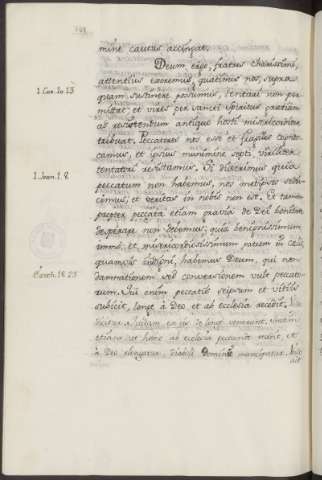 mine cautus accingat.
Deum ergo, fratres charissimi,
attentius exoremus, quatinus nos, supra
1. Cor. 10. 13
quam sustinere possumus, tentari non per-
mittat, et vires per sancti spiritus gratiam
ad resistentum antiquo hosti misericorditer
tribuat. Peccatores nos esse et fragiles
camus, et ipsius munimine septi, viriliter
tentatori resistamus. Si dixerimus quia
1. Joan. 1. 8
peccatum non habemus, nos metipsos sedu-
cimus, et veritas in nobis non est. Et tamen
propter peccata etiam gravia de Dei bonitate
desperare non debemus, quia benignissimum
et misericordissimum patrem in celis,
quamvis indigni, habemus Deum, qui non
damnationem sed conversionem vult pecca-
18. 23
rum. Qui enim peccatis seipsum et vitiis
subicit, longe a Deo et ab ecclesia recedit,
de longe venerunt.
etiam ut hanc ab ecclesia
a Deo elongatur, diaboli